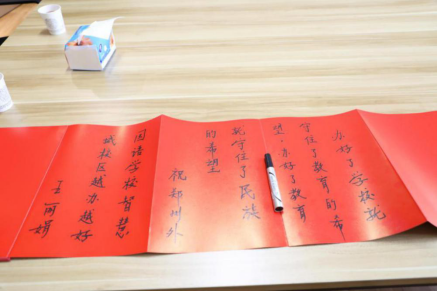 办好了学校就
守住了教育的希
望，办好了教育
就守住了民族
的希望
祝郑州外
国语学校智慧
城校区越办越好
王丽娟